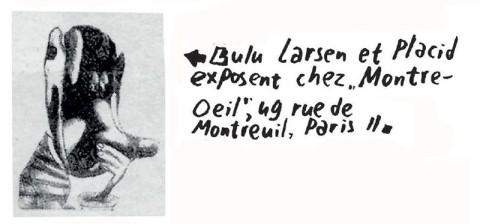 ←Bulu Larsen et Placid
exposent chez „Montre-
Oeil”, 49 rue de
Montreuil, Paris 11.